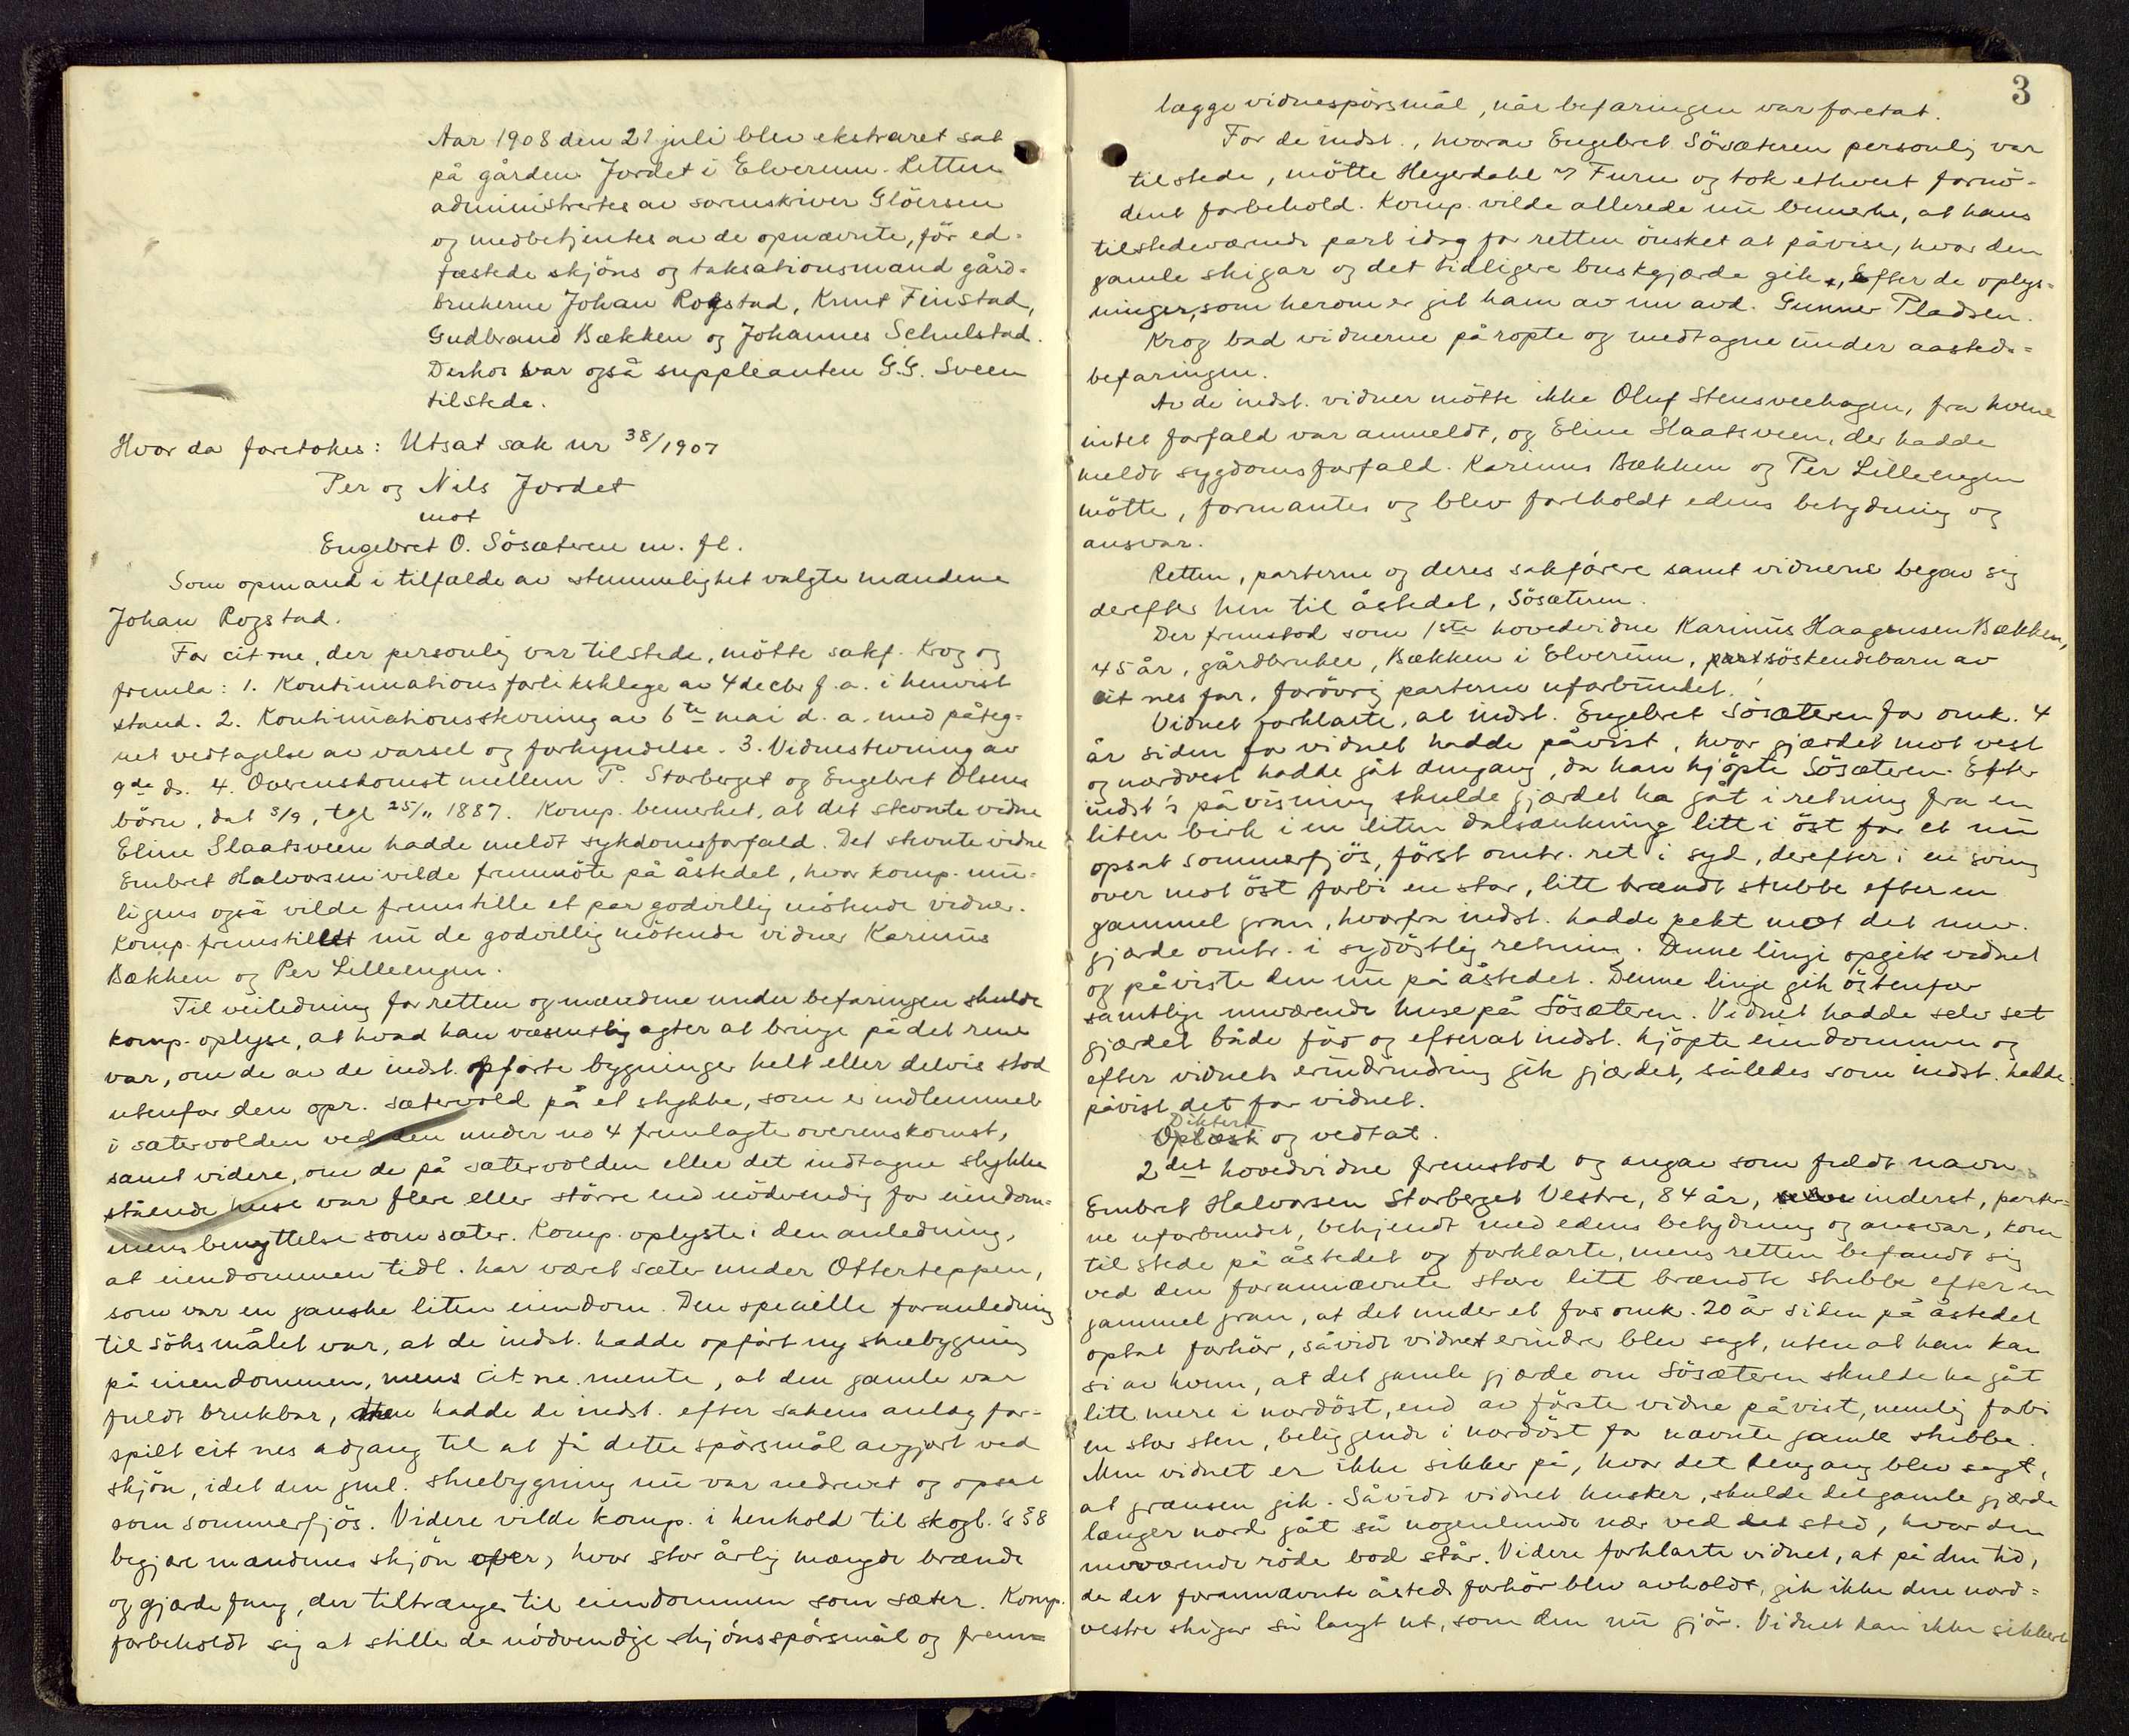 Aar 1908 den 21 juli blev ekstraret sat
på gården Jordet i Elverum. Retten
administrertes av sorenskriver Glöersen
og medbetjentes av de opnævnte, för ed-
fæstede skjöns og taksationsmænd gård-
brukerne Johan Rogstad, Knut Finstad,
Gudbrand Bækken og Johannes Schulstad.
Derhos var også suppleanten G.G. Sveen
tilstede.
Hvor da foretokes: Utsat sak nr 38/1907
Per og Nils Jordet
mot
Engebret O. Sösæteren m. fl.
Som opmand i tilfælde av stemmelighet valgte mændene
Johan Rogstad.
For cit-ne, der personlig var tilstede, mötte sakf. Krog og
fremla: 1. Kontinuationsforliksklage av 4 decbr f.a. i henvist
stand. 2. Kontinuationsstevning av 6te mai d.a. med påteg-
net vedtagelse av varsel og forkyndelse. 3. Vidnestevning av
9de ds. 4. Overenskomst mellem P. Storberget og Engebret Olsens
börn, dat 3/9, tgl 25/11 1887. Komp. bemerket, at det stevnte vidne
Eline Slaatsveen hadde meldt sykdomsforfald. Det stevnte vidne
Embret Halvorsen vilde fremmöte på åstedet, hvor komp. mu-
ligens også vilde fremstille et par godvillig mötende vidner.
Komp. fremstillet nu de godvillig mötende vidner Karinus
Bækken og Per Lilleengen.
Til veiledning for retten og mændene under befaringen skulde
komp. oplyse, at hvad han væsentlig agter at bringe på det rene
var, om de av de indst. opförte bygninger helt eller delvis stod
utenfor den opr. sætervold på et stykke, som er indlemmet
i sætervolden ved den under no 4 fremlagte overenskomst,
samt videre, om de på sætervolden eller det indtagne stykke
stående huse var flere eller större end nödvendig for eiendom-
mens benyttelse som sæter. Komp. oplyste i den anledning,
at eiendommen tidl. har været sæter under Otterteppen,
som var en ganske liten eiendom. Den specielle foranledning
til söksmålet var, at de indst. hadde opfört ny stuebygning
på eiendommen, mens cit-ne mente, at den gamle var
fuldt brukbar, men hadde de indst. efter sakens anlæg for-
spilt cit nes adgang til at få dette spörsmål avgjort ved
skjön, idet den gml. stuebygning nu var nedrevet og opsat
som sommerfjös. Videre vilde komp. i henhold til skogl.'s § 8
begjære mændenes skjön over, hvor stor årlig mængde brænde
og gjærdefang, der tiltrænges til eiendommen som sæter. Komp.
forbeholdt sig at stille de nödvendige skjönsspörsmål og frem=
3
lægge vidnespörsmål, når befaringen var foretat.
For de indst., hvorav Engebret Sösæteren personlig var
tilstede, mötte Heyerdahl v/ Furu og tok ethvert fornö-
dent forbehold. Komp. vilde allerede nu bemerke, at hans
tilstedeværende part idag for retten önsket at påvise, hvor den
gamle skigar og det tidligere buskgjærde gik, efter de oplys-
ninger, som herom er git ham av nu avd. Gunner Pladsen.
Krog bad vidnerne påropte og medtagne under aasteds-
befaringen.
Av de indst. vidner mötte ikke Oluf Stensveehagen, fra hvem
intet forfald var anmeldt, og Eline Slaatsveen, der hadde
meldt sygdomsforfald. Karinus Bækken og Per Lilleengen
mötte, formantes og blev foreholdt edens betydning og
ansvar.
Retten, parterne og deres sakförere samt vidnerne begav sig
derefter hen til åstedet, Sösæteren.
Der fremstod som 1ste hovedvidne Karinus Haagensen Bækken,
45 år, gårdbruker, Bækken i Elverum, söskendebarn av
cit nes far, forövrig parterne uforbundet.
Vidnet forklarte, at indst. Engebret Sösæteren for omk. 4
år siden for vidnet hadde påvist, hvor gjærdet mot vest
og nordvest hadde gåt dengang, da han kjöpte Sösæteren. Efter
indst's påvisning skulde gjærdet ha gåt i retning fra en
liten birk i en liten dalsænkning litt i öst for et nu
opsat sommerfjös, först omtr. ret i syd, derefter i en sving
over mot öst forbi en stor, litt brændt stubbe efter en
gammel gran, hvorfra indst. hadde pekt mot det nuv.
gjærde omtr. i sydöstlig retning. Denne linje opgik vidnet
og påviste den nu på åstedet. Denne linje gik östenfor
samtlige nuværende huse på Sösæteren. Vidnet hadde selv set
gjærdet både för og efterat indst. kjöpte eiendommen og
efter vidnets erindring gik gjærdet, således som indst. hadde
påvist det for vidnet.
Diktert
Oplæst og vedtat.
2det hovedvidne fremstod og angav som fuldt navn
Embret Halvorsen Storberget Vestre, 84 år, inderst, parter-
ne uforbundet, bekjendt med edens betydning og ansvar, kom
til stede på åstedet og forklarte, mens retten befandt sig
ved den forannævnte store litt brændte stubbe efter en
gammel gran, at det under et for omk. 20 år siden på åstedet
optat forhör, såvidt vidnet erindrer blev sagt, uten at han kan
si av hvem, at det gamle gjærde om Sösæteren skulde ha gåt
litt mere i nordöst, end av förste vidne påvist, nemlig forbi
en stor sten, beliggende i nordöst for nævnte gamle stubbe.
Men vidnet er ikke sikker på, hvor det dengang blev sagt,
at grænsen gik. Såvidt vidnet husker, skulde det gamle gjærde
længer nord gåt så nogenlunde nær ved det sted, hvor den
nuværende röde bod står. Videre forklarte vidnet, at på den tid,
da det forannævnte åstedsforhör blev avholdt, gik ikke den nord=
vestre skigar så langt ut, som den nu gjör. Vidnet kan ikke sikkert